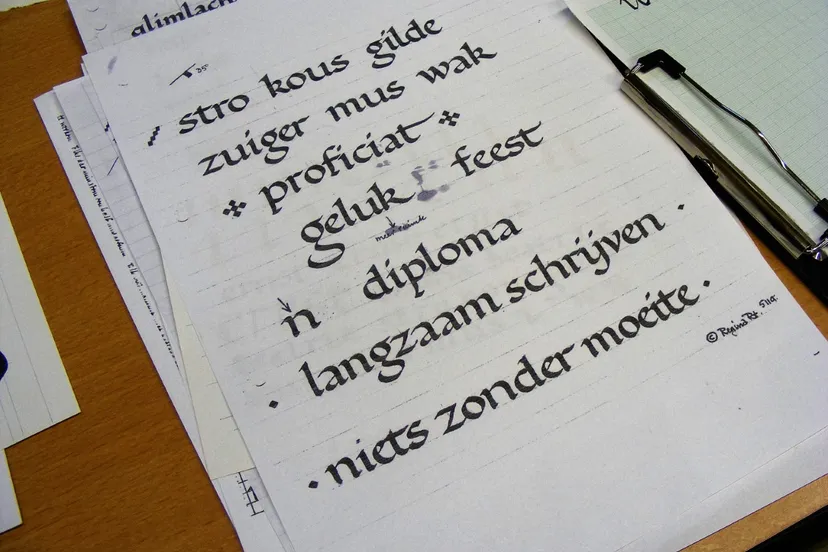 glimlach
35°
stro kous gilde
zuiger mus wak
proficiat
geluk feest
n diploma
langzaam schrijven
niets zonder moeite
©